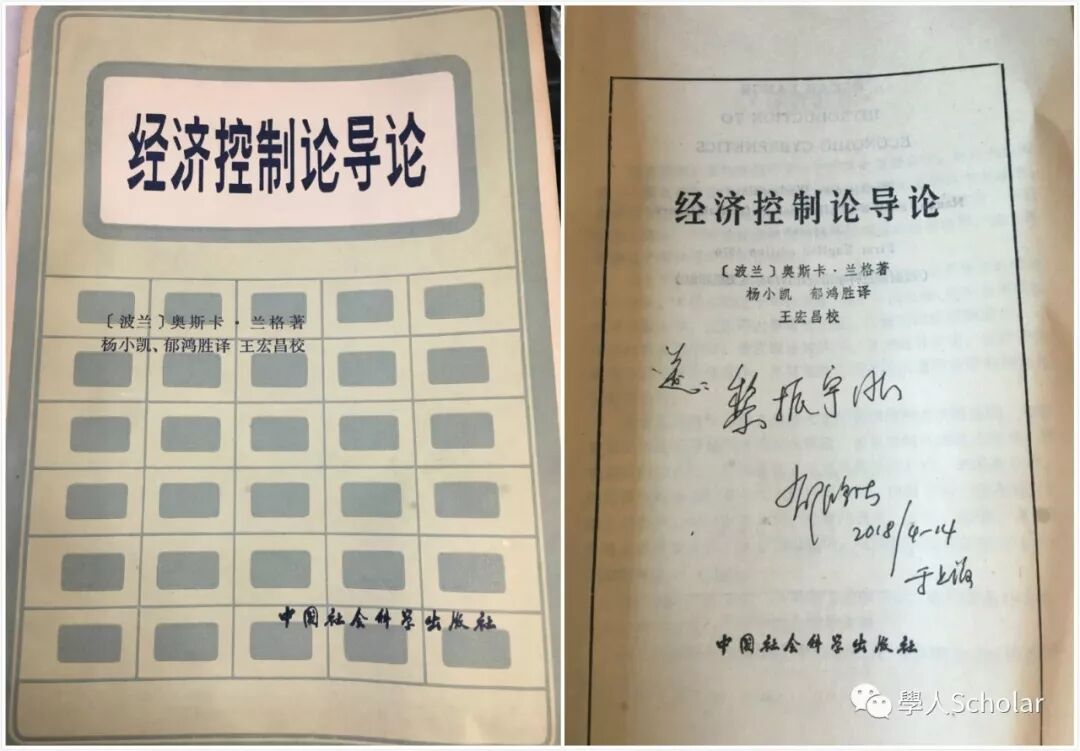 经济控制论导论
〔波兰〕奥斯卡·兰格著
杨小凯、郁鸿胜译 王宏昌校
中国社会科学出版社
经济控制论导论
〔波兰〕奥斯卡·兰格著
杨小凯 郁鸿胜译
王宏昌校
送:
黎振宇
郁鸿胜
2018/4-14
于上海
中国社会科学出版社
學人Scholar